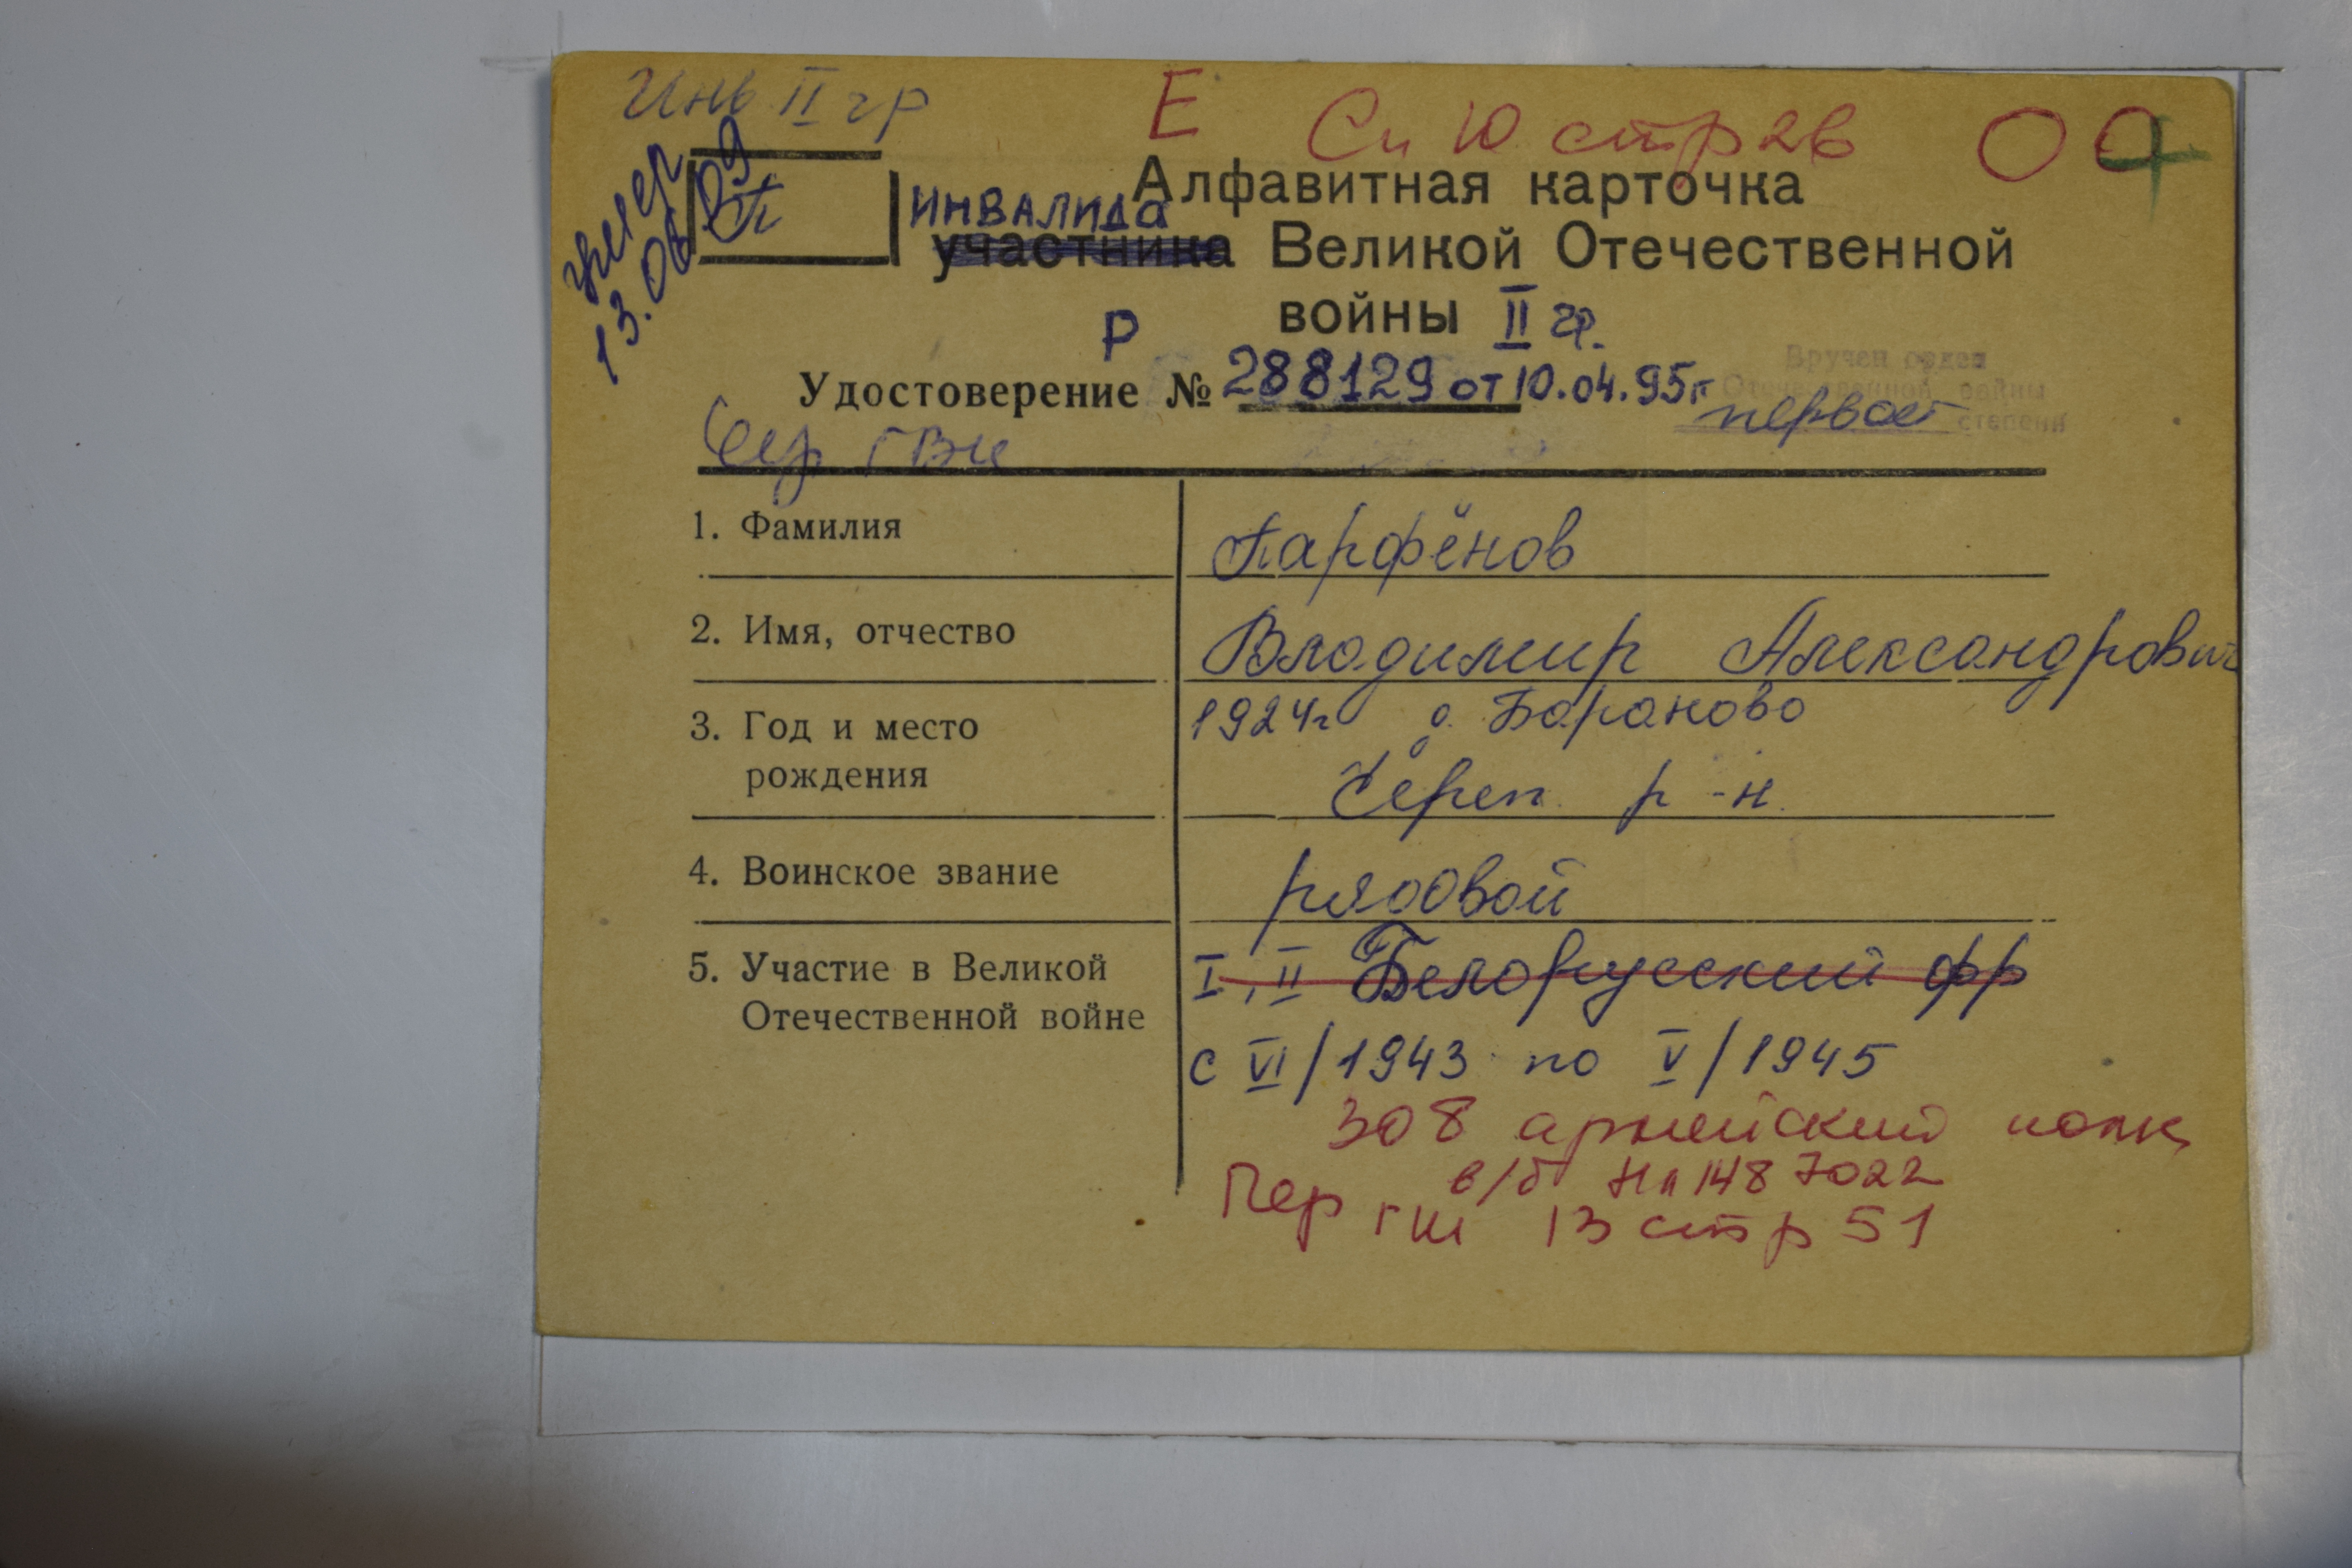 Инв II гр
Е Сп 10 стр 26
умер
13.06.09
П
Алфавитная карточка
ИНВАЛИДА
участника Великой Отечественной
войны II гр.
Р
Удостоверение № 288129 от 10.04.95г
Вручен орден
Отечественной войны
первой степени
Сер ГВК
1. Фамилия Парфёнов
2. Имя, отчество Владимир Александрович
3. Год и место рождения 1924г д. Бараново
Череп. р-н.
4. Воинское звание рядовой
5. Участие в Великой Отечественной войне I, II Белорусский фр
с VI/1943 по V/1945
308 армейский полк
в/б НП 148 7022
Пер ГШ 13 стр 51